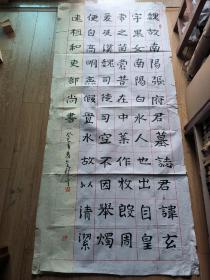 魏故南陽張府君墓誌君諱玄
字黑女南陽白水人也出自皇
帝之苗裔昔在中葉作牧殷周
爰及漢魏司徒司空不因舉燭
便自高明无假置水故以清潔
遠祖和吏部尚書